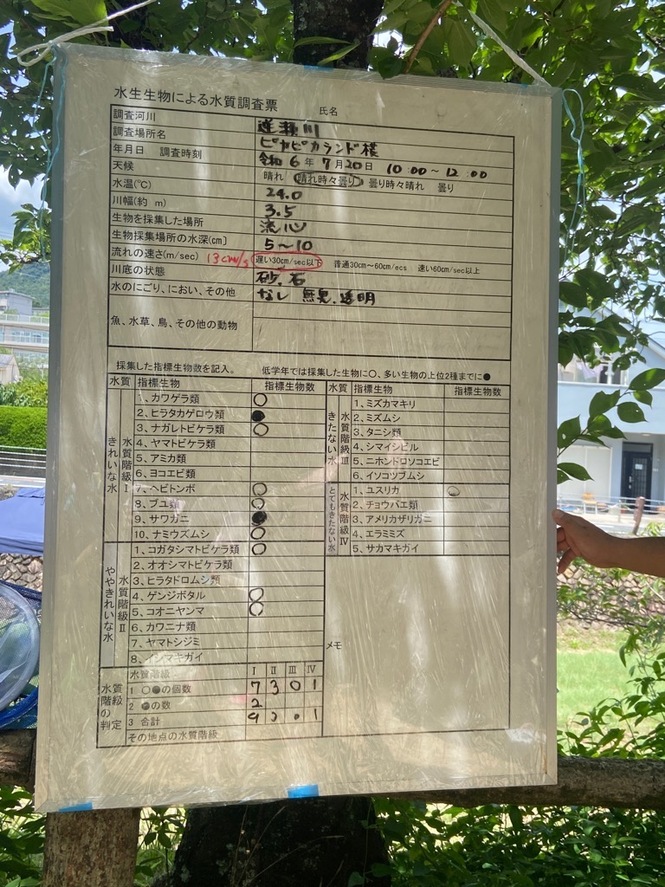 水生生物による水質調査票 氏名
調査河川 逆瀬川
調査場所名 ピカピカランド様
年月日 調査時刻 令和6年7月20日 10:00～12:00
天候 晴れ 晴れ時々曇り 曇り時々晴れ 曇り
水温(℃) 24.0
川幅(約 m) 3.5
生物を採集した場所 流心
生物採集場所の水深(cm) 5～10
流れの速さ(m/sec) 13cm/s 遅い30cm/sec以下 普通30cm～60cm/ecs 速い60cm/sec以上
川底の状態 砂、石
水のにごり、におい、その他 なし 無臭、透明
魚、水草、鳥、その他の動物
採集した指標生物数を記入。 低学年では採集した生物に〇、多い生物の上位2種までに●
水質 指標生物 指標生物数
きれいな水 水質階級Ⅰ
1、カワゲラ類 ○
2、ヒラタカゲロウ類 ●
3、ナガレトビケラ類 ○
4、ヤマトビケラ類
5、アミカ類
6、ヨコエビ類
7、ヘビトンボ ○
8、ブユ類 ○
9、サワガニ ●
10、ナミウズムシ ○
ややきれいな水 水質階級Ⅱ
1、コガタシマトビケラ類 ○
2、オオシマトビケラ類
3、ヒラタドロムシ類
4、ゲンジボタル ○
5、コオニヤンマ ○
6、カワニナ類
7、ヤマトシジミ
8、イシマキガイ
水質 指標生物 指標生物数
きたない水 水質階級Ⅲ
1、ミズカマキリ
2、ミズムシ
3、タニシ類
4、シマイシビル
5、ニホンドロソコエビ
6、イソコツブムシ
とてもきたない水 水質階級Ⅳ
1、ユスリカ ○
2、チョウバエ類
3、アメリカザリガニ
4、エラミミズ
5、サカマキガイ
メモ
水質階級の判定
水質階級 Ⅰ Ⅱ Ⅲ Ⅳ
1 ○●の個数 7 3 0 1
2 ●の数 2
3 合計 9 1
その地点の水質階級